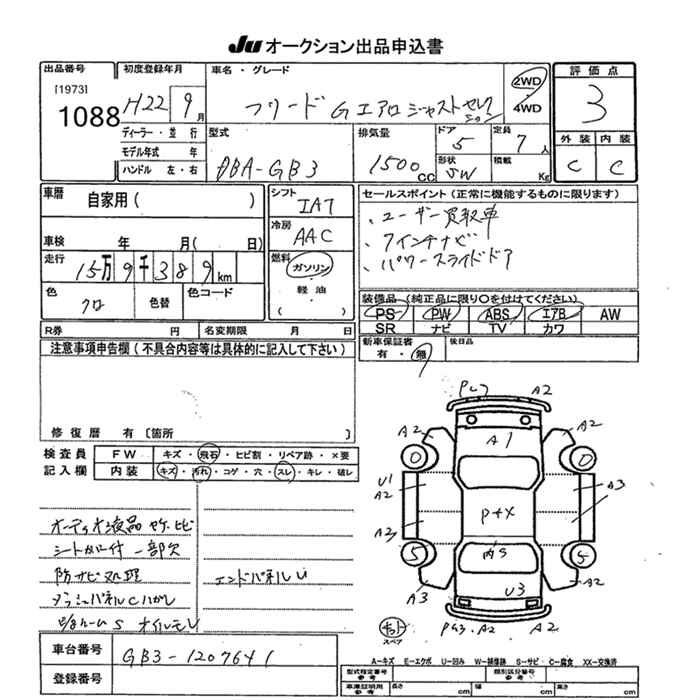 JU オークション出品申込書
出品番号
[1973]
1088
初度登録年月
H22 9月
ディーラー・並 行
モデル年式 年
ハンドル 左・右
車名・グレード
フリード G エアロ ジャストセレクション
2WD
4WD
評価点
3
外装 内装
C C
型式
DBA-GB3
排気量
1500cc
ドア
5
形状
SW
定員
7人
積載
Kg
車暦
自家用( )
車検 年 月( 日)
走行
15万9千389km
色
クロ
色替
色コード
シフト
IAT
冷房
AAC
燃料
ガソリン
軽油
( )
セールスポイント(正常に機能するものに限ります)
、ユーザー買取車
、7インチナビ
、パワースライドドア
装備品(純正品に限り○を付けてください)
PS PW ABS エアB AW
SR ナビ TV カワ
R券 円
名変期限 月 日
新車保証書
有・無
後日品
注意事項申告欄(不具合内容等は具体的に記入して下さい)
修復歴 有〔箇所 〕
検査員
記入欄
FW キズ・飛石・ヒビ割・リペア跡・×要
内装 キズ・汚れ・コゲ・穴・スレ・キレ・破レ
オーディオ液晶ヤケ、ヒビ
シートカバー付 一部欠
防サビ処理
ダッシュパネルCハガレ
エンドパネルU
オイルモレ
車台番号
GB3-1207641
登録番号
A2
A2 A1 A2
0 0
U1
A2
A3
P+X
A3
内S
5 5
A3 U3 A2
スペア
PG3・A2 A2
A-キズ E-エクボ U-凹み W-補修跡 S-サビ C-腐食 XX-交換済
型式指定番号
類別区分番号
車庫証明用
参考
長さ cm
幅 cm
高さ cm